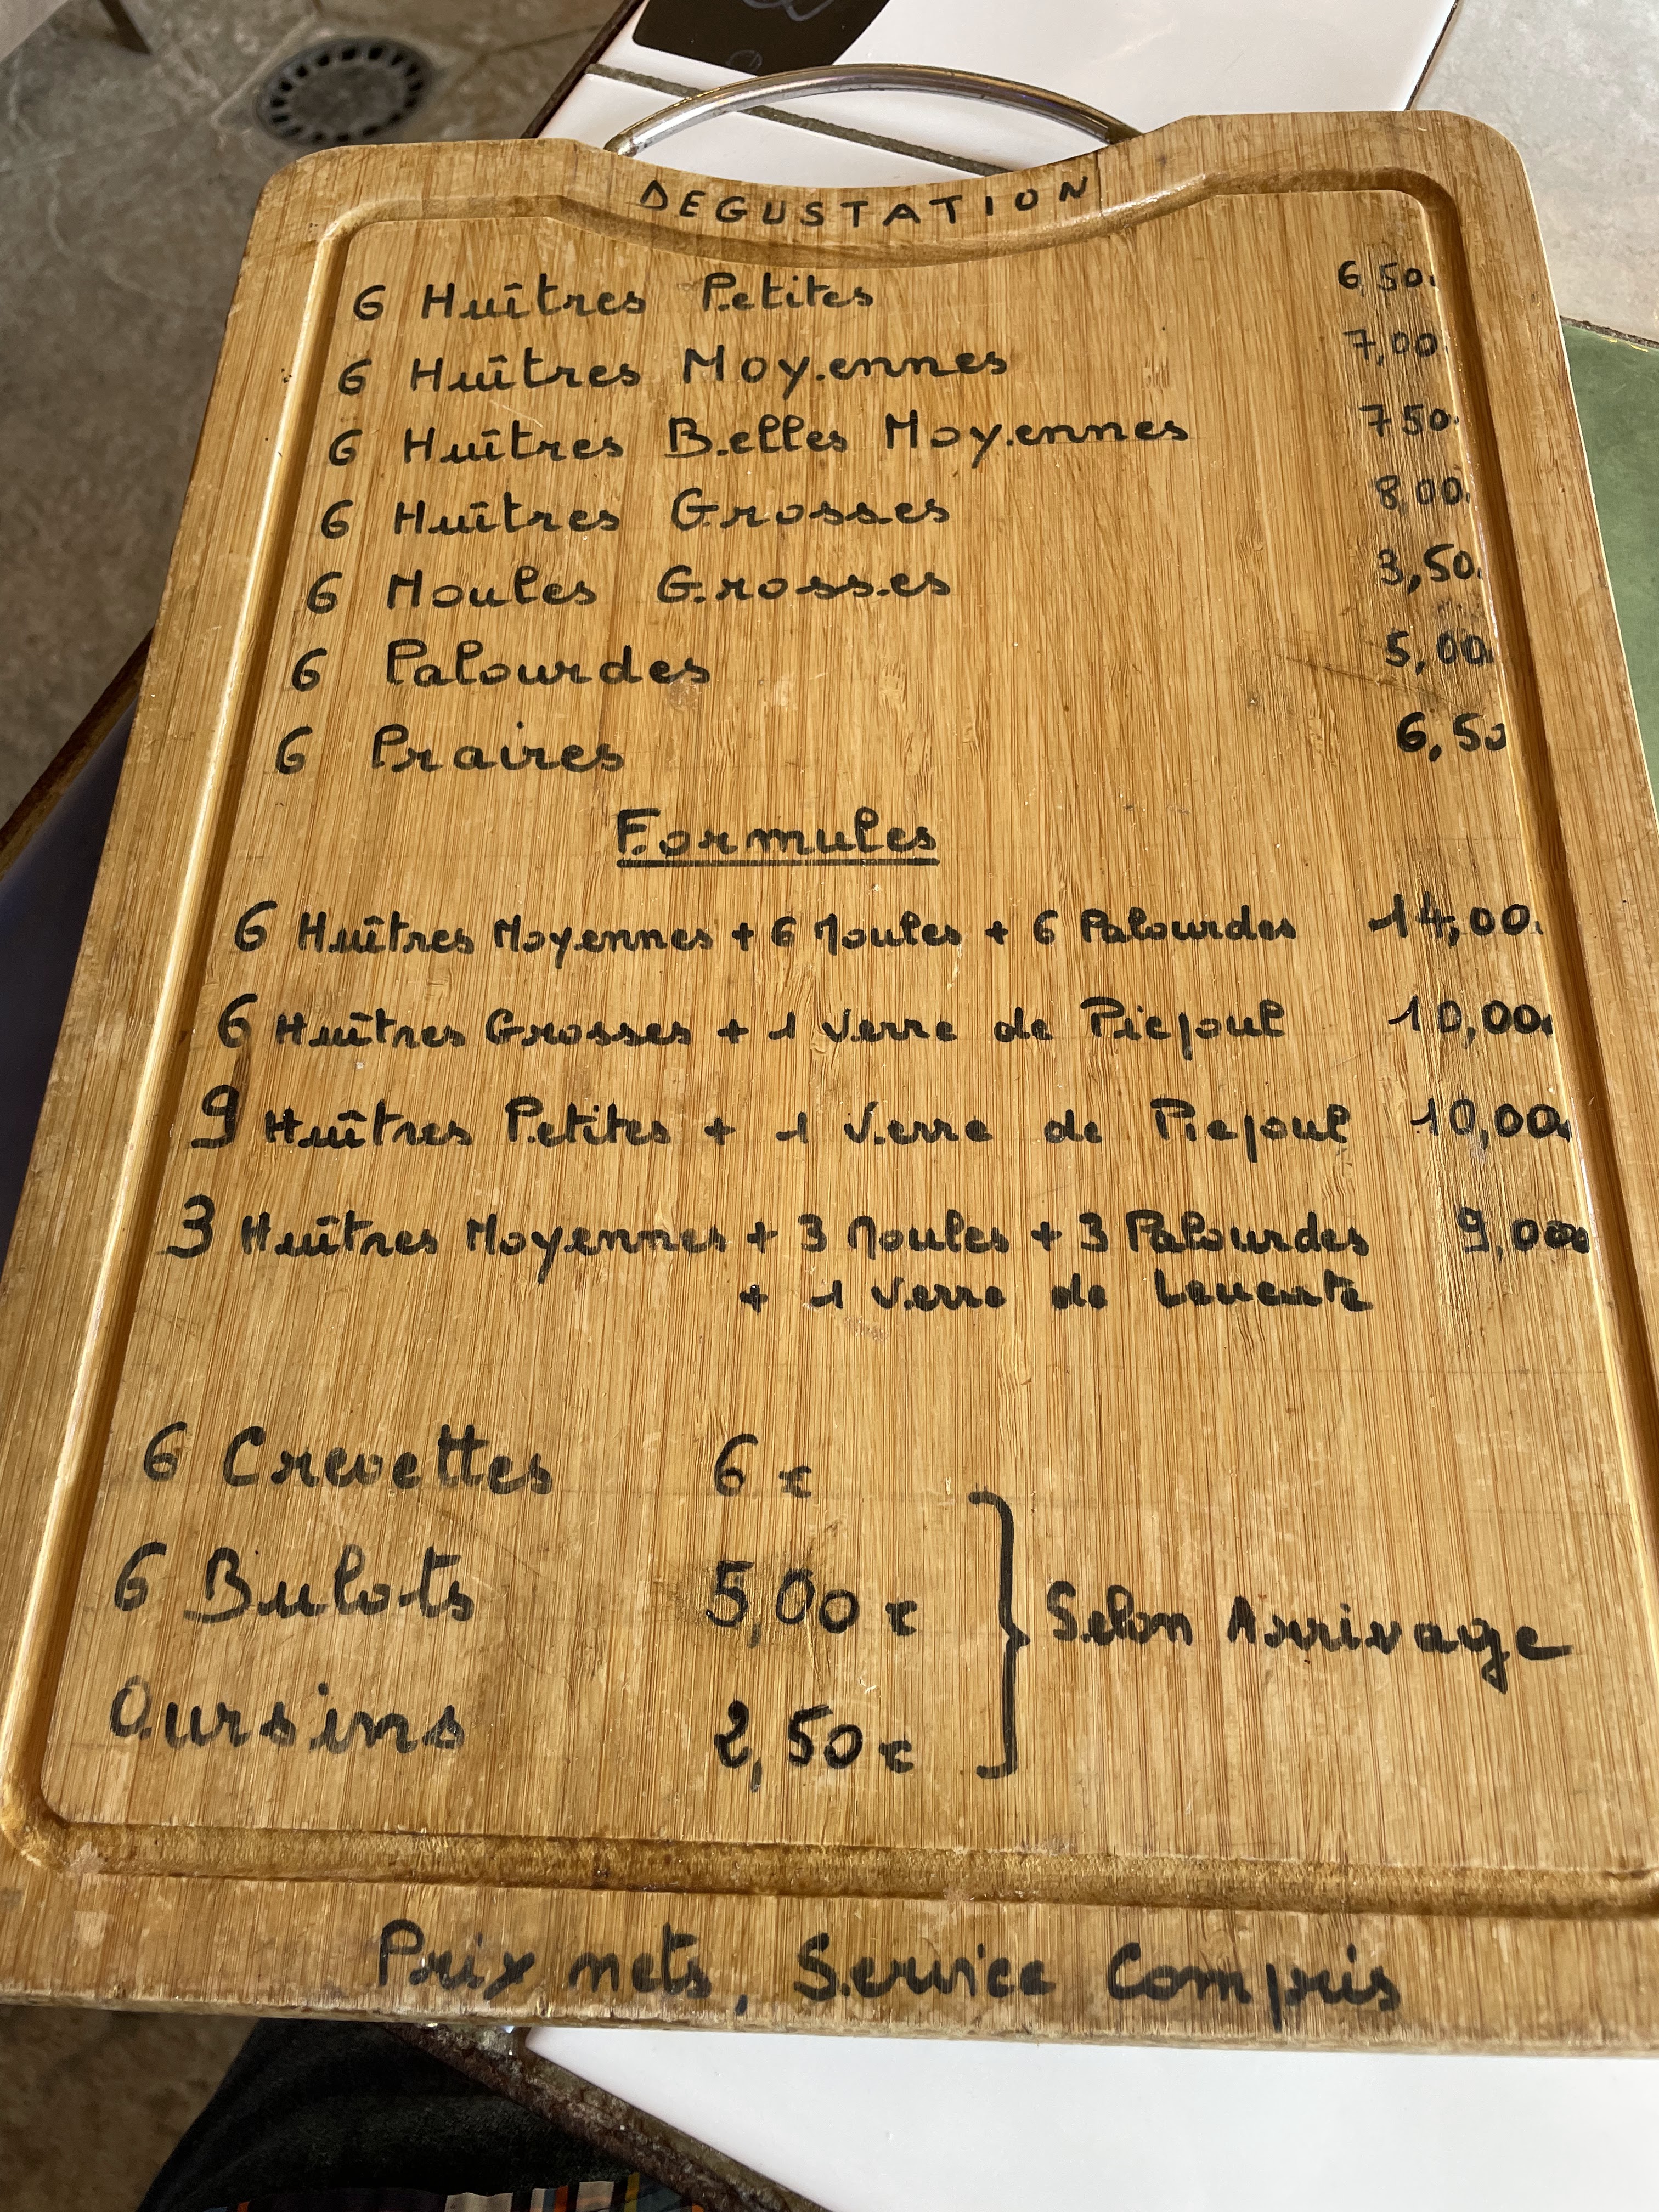 DEGUSTATION
6 Huîtres Petites 6,50
6 Huîtres Moyennes 7,00
6 Huîtres Belles Moyennes 7 50
6 Huîtres Grosses 8,00
6 Moules Grosses 3,50
6 Palourdes 5,00
6 Praires 6,50
Formules
6 Huîtres Moyennes + 6 Moules + 6 Palourdes 14,00
6 Huîtres Grosses + 1 Verre de Picpoul 10,00
9 Huîtres Petites + 1 Verre de Picpoul 10,00
3 Huîtres Moyennes + 3 Moules + 3 Palourdes 9,00
+ 1 Verre de
6 Crevettes 6 €
6 Bulots 5,00 €
Oursins 2,50 €
Selon Arrivage
Prix nets, Service Compris